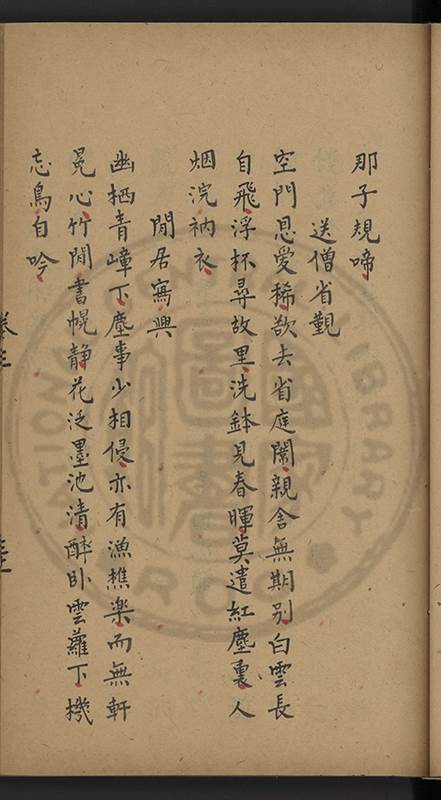 那子規啼
送僧省覲
空門恩愛稀欲去省庭闈親舍無期別白雲長
自飛浮杯尋故里洗鉢見春暉莫遣紅塵裏人
烟浣衲衣
閒居寫興
幽栖青嶂下塵事少相侵亦有漁樵楽而無軒
冕心竹閒書幌静花泛墨池清醉卧雲蘿下機
忘鳥自吟